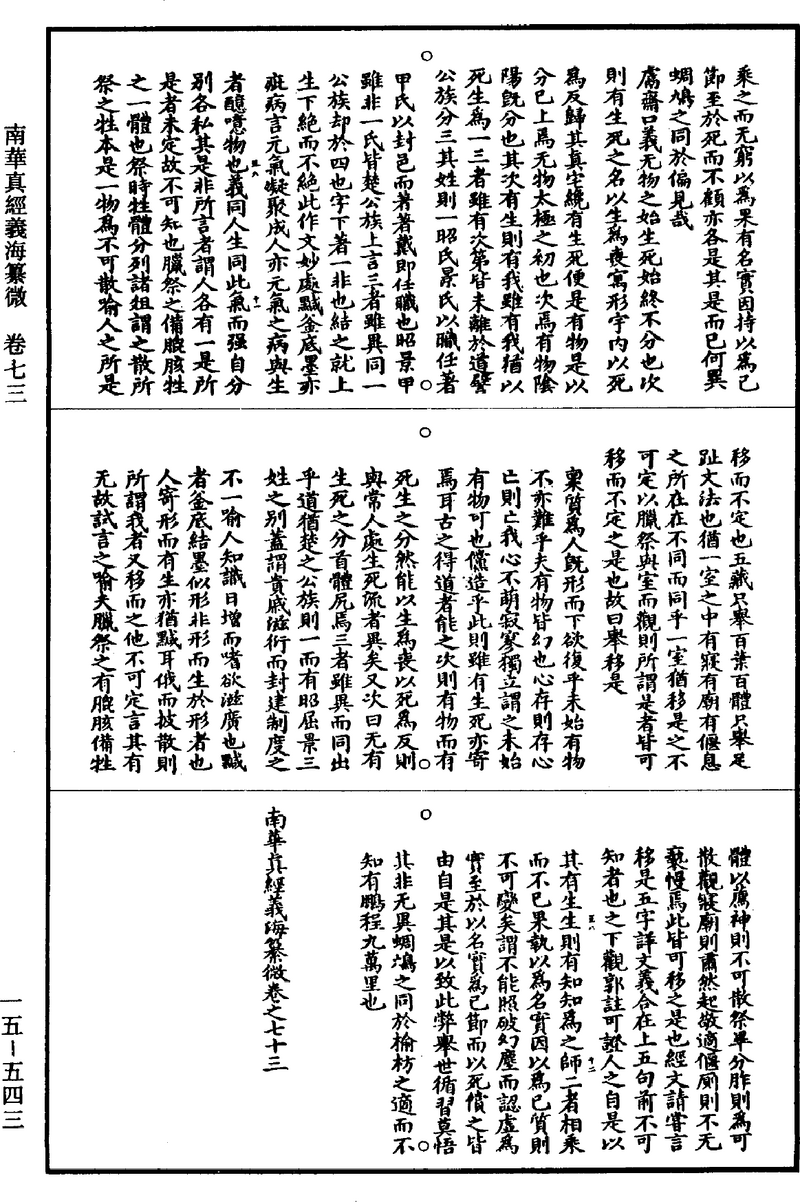 乘之而无窮以爲果有名實因持以爲己
節至於死而不顧亦各是其是而已何異
蜩鳩之同於偏見哉
鬳齋口義无物之始生死始終不分也次
則有生死之名以生爲喪寓形宇內以死
爲反歸其真宅纔有生死便是有物是以
分已上焉无物太極之初也次焉有物陰
陽旣分也其次有生則有我雖有我猶以
死生爲一三者雖有次第皆未離於道譬
公族分三其姓則一昭氏景氏以職任著
甲氏以封邑而著著戴即任職也昭景甲
雖非一氏皆楚公族上言三者雖異同一
公族却於四也字下著一非也結之就上
生下絕而不絕此作文妙處黬釜底墨亦
疵病言元氣凝聚成人亦元氣之病與生
者醷噫物也義同人生同此氣而强自分
別各私其是非所言者謂人各有一是所
是者未定故不可知也臘祭之備膍胲牲
之一體也祭時牲體分列諸俎謂之散所
祭之牲本是一物爲不可散喻人之所是
移而不定也五藏只舉百葉百體只舉足
趾文法也猶一室之中有寢有廟有偃息
之所在在不同而同乎一室猶移是之不
可定以臘祭與室而觀則所謂是者皆可
移而不定之是也故曰舉移是
稟質爲人旣形而下欲復乎未始有物
不亦難乎夫有物皆幻也心存則存心
亡則亡我心不萌寂寥獨立謂之未始
有物可也儻造乎此則雖有生死亦寄
焉耳古之得道者能之次則有物而有
死生之分然能以生爲喪以死爲反則
與常人處生死流者異矣又次曰无有
生死之分首體尻焉三者雖異而同出
乎道猶楚之公族則一而有昭屈景三
姓之別蓋謂貴戚滋衍而封建制度之
不一喻人知識日增而嗜欲滋廣也黬
者釜底結墨似形非形而生於形者也
人寄形而有生亦猶黬耳俄而披散則
所謂我者又移而之他不可定言其有
无故試言之喻夫臘祭之有膍胲備牲
體以薦神則不可散祭畢分胙則爲可
散觀寢廟則肅然起敬適偃厠則不无
褻慢焉此皆可移之是也經文請嘗言
移是五字詳文義合在上五句前不可
知者也之下觀郭註可證人之自是以
其有生生則有知知爲之師二者相乘
而不已果執以爲名實因以爲已質則
不可變矣謂不能照破幻塵而認虛爲
實至於以名實爲已節而以死償之皆
由自是其是以致此弊舉世循習莫悟
其非无異蜩鳩之同於榆枋之適而不
知有鵬程九萬里也
南華真經義海纂微卷之七十三
南華真經義海纂微　卷七三
一五－五四三